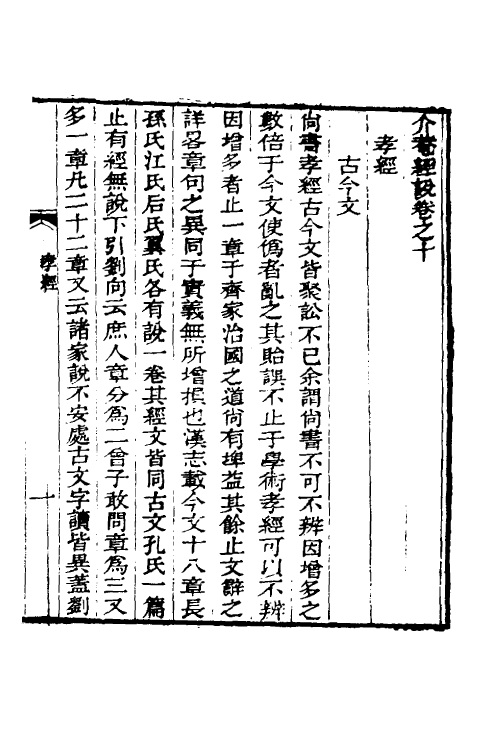 介菴經說卷之十
孝經
古今文
尙書孝經古今文皆聚訟不已余謂尙書不可不辨因增多之
數倍于今文使僞者亂之其貽誤不止于學術孝經可以不辨
因增多者止一章于齊家治國之道尙有埤益其餘止文辭之
詳畧章句之異同于實義無所增損也漢志載今文十八章長
孫氏江氏后氏翼氏各有說一卷其經文皆同古文孔氏一篇
止有經無說下引劉向云庶人章分爲二曾子敢問章爲三又
多一章凡二十二章又云諸家說不安處古文字讀皆異蓋劉
孝經
一